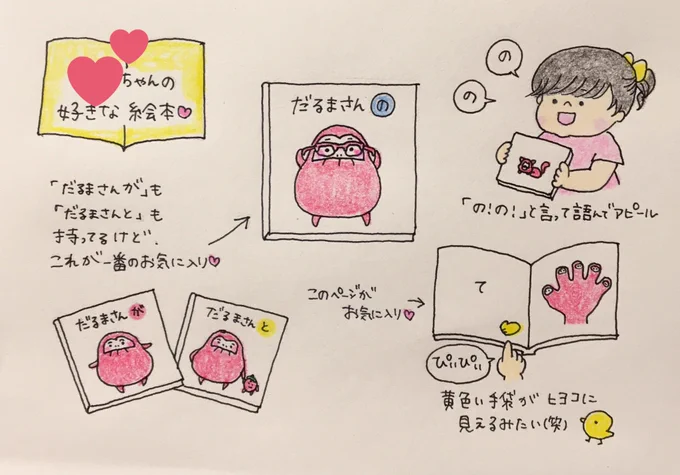 ちゃんの
好きな絵本
「だるまさんが」も
「だるまさんと」も
持ってるけど、
これが一番のお気に入り
だるまさんの
だるまさんが
だるまさんと
の
の
「の!の!」と言って読んでアピール
このページが
お気に入り
て
ぴぃぴぃ
黄色い手袋がヒヨコに
見えるみたい(笑)